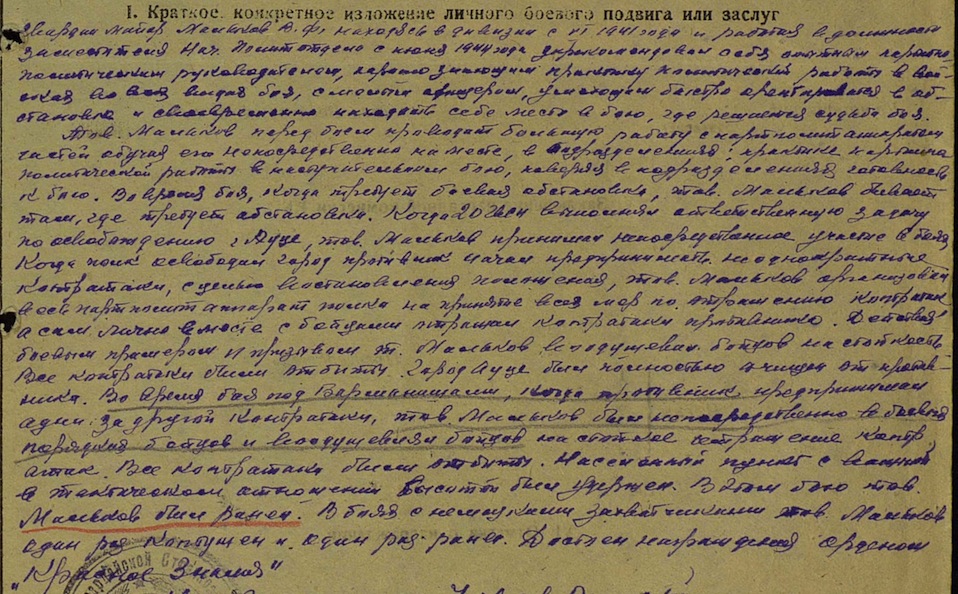 I. Краткое, конкретное изложение личного боевого подвига или заслуг
Гвардии майор Мальков В.Ф. находясь в дивизии с 1941 года и работая в должности
заместителя Нач. Политотдела с июня 1944 года зарекомендовал себя опытным партийно
политическим руководителем, хорошо знающим практику политической работы в вой-
сках во всех видах боя, смелым офицером, умеющим быстро ориентироваться в об-
становке и своевременно находить себе место в бою, где решается судьба боя.
Тов. Мальков перед боем проводит большую работу с партполитаппаратом
частей обучая его непосредственно на месте, в подразделениях, практике партийно
политической работы в наступательном бою, проверяя в подразделениях готовность
к бою. Во время боя, когда требует боевая обстановка, тов. Мальков бывает
там, где требует обстановка. Когда 20 выполнял ответственную задачу
по освобождению г. Ауце, тов. Мальков принимал непосредственное участие в боях
Когда полк освободил город противник начал предпринимать неоднократные
контратаки, с целью восстановления положения, тов. Мальков организовал
весь партполитаппарат полка на принятие всех мер по отражению контратак
а сам лично вместе с бойцами отражал контратаки противника. Действуя
боевым примером и призывом т. Мальков воодушевлял бойцов на стойкость
Все контратаки были отбиты. Город Ауце был полностью очищен от против-
ника. Во время боя под когда противник предпринимал
одну за другой контратаки, тов. Мальков был непосредственно в боевых
порядках бойцов и воодушевлял бойцов на стойкое отражение контр
атак. Все контратаки были отбиты. Населенный пункт с важной
в тактическом отношении высотой был удержан. В этом бою тов.
Мальков был ранен. В боях с немецкими захватчиками тов. Мальков
один раз контужен и один раз ранен. Достоин награждения орденом
"Красное Знамя"